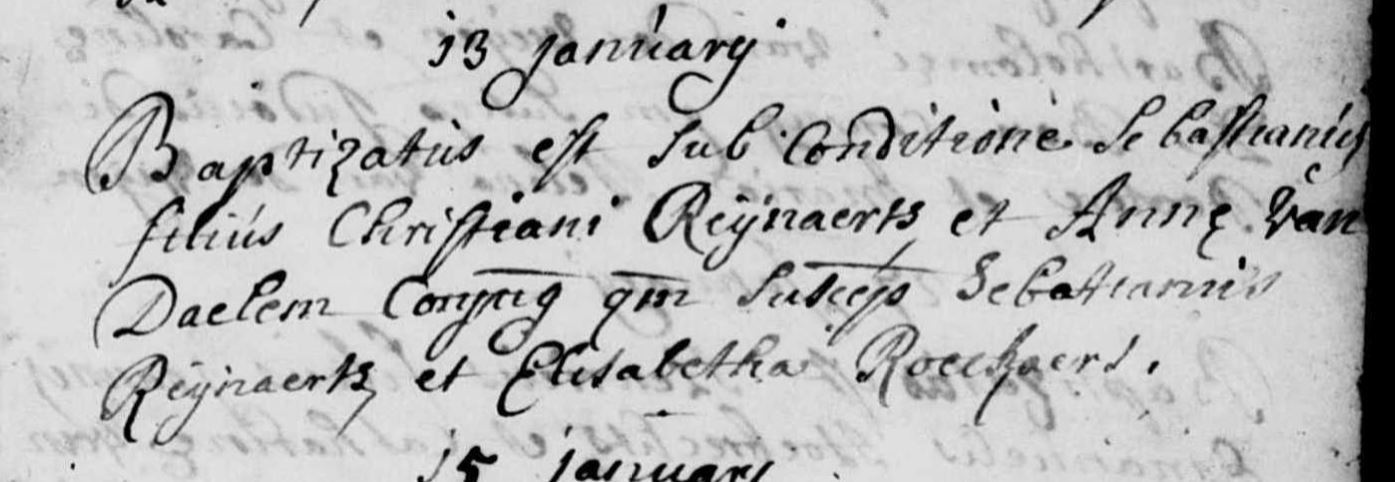 13 january
Baptizatus est sub Conditione Sebastianus
filius Christiani Reÿnaerts et Annę Van
Daelem Conjug qm suscep Sebastianus
Reÿnaerts et Elisabetha Roeckaers.
15 january